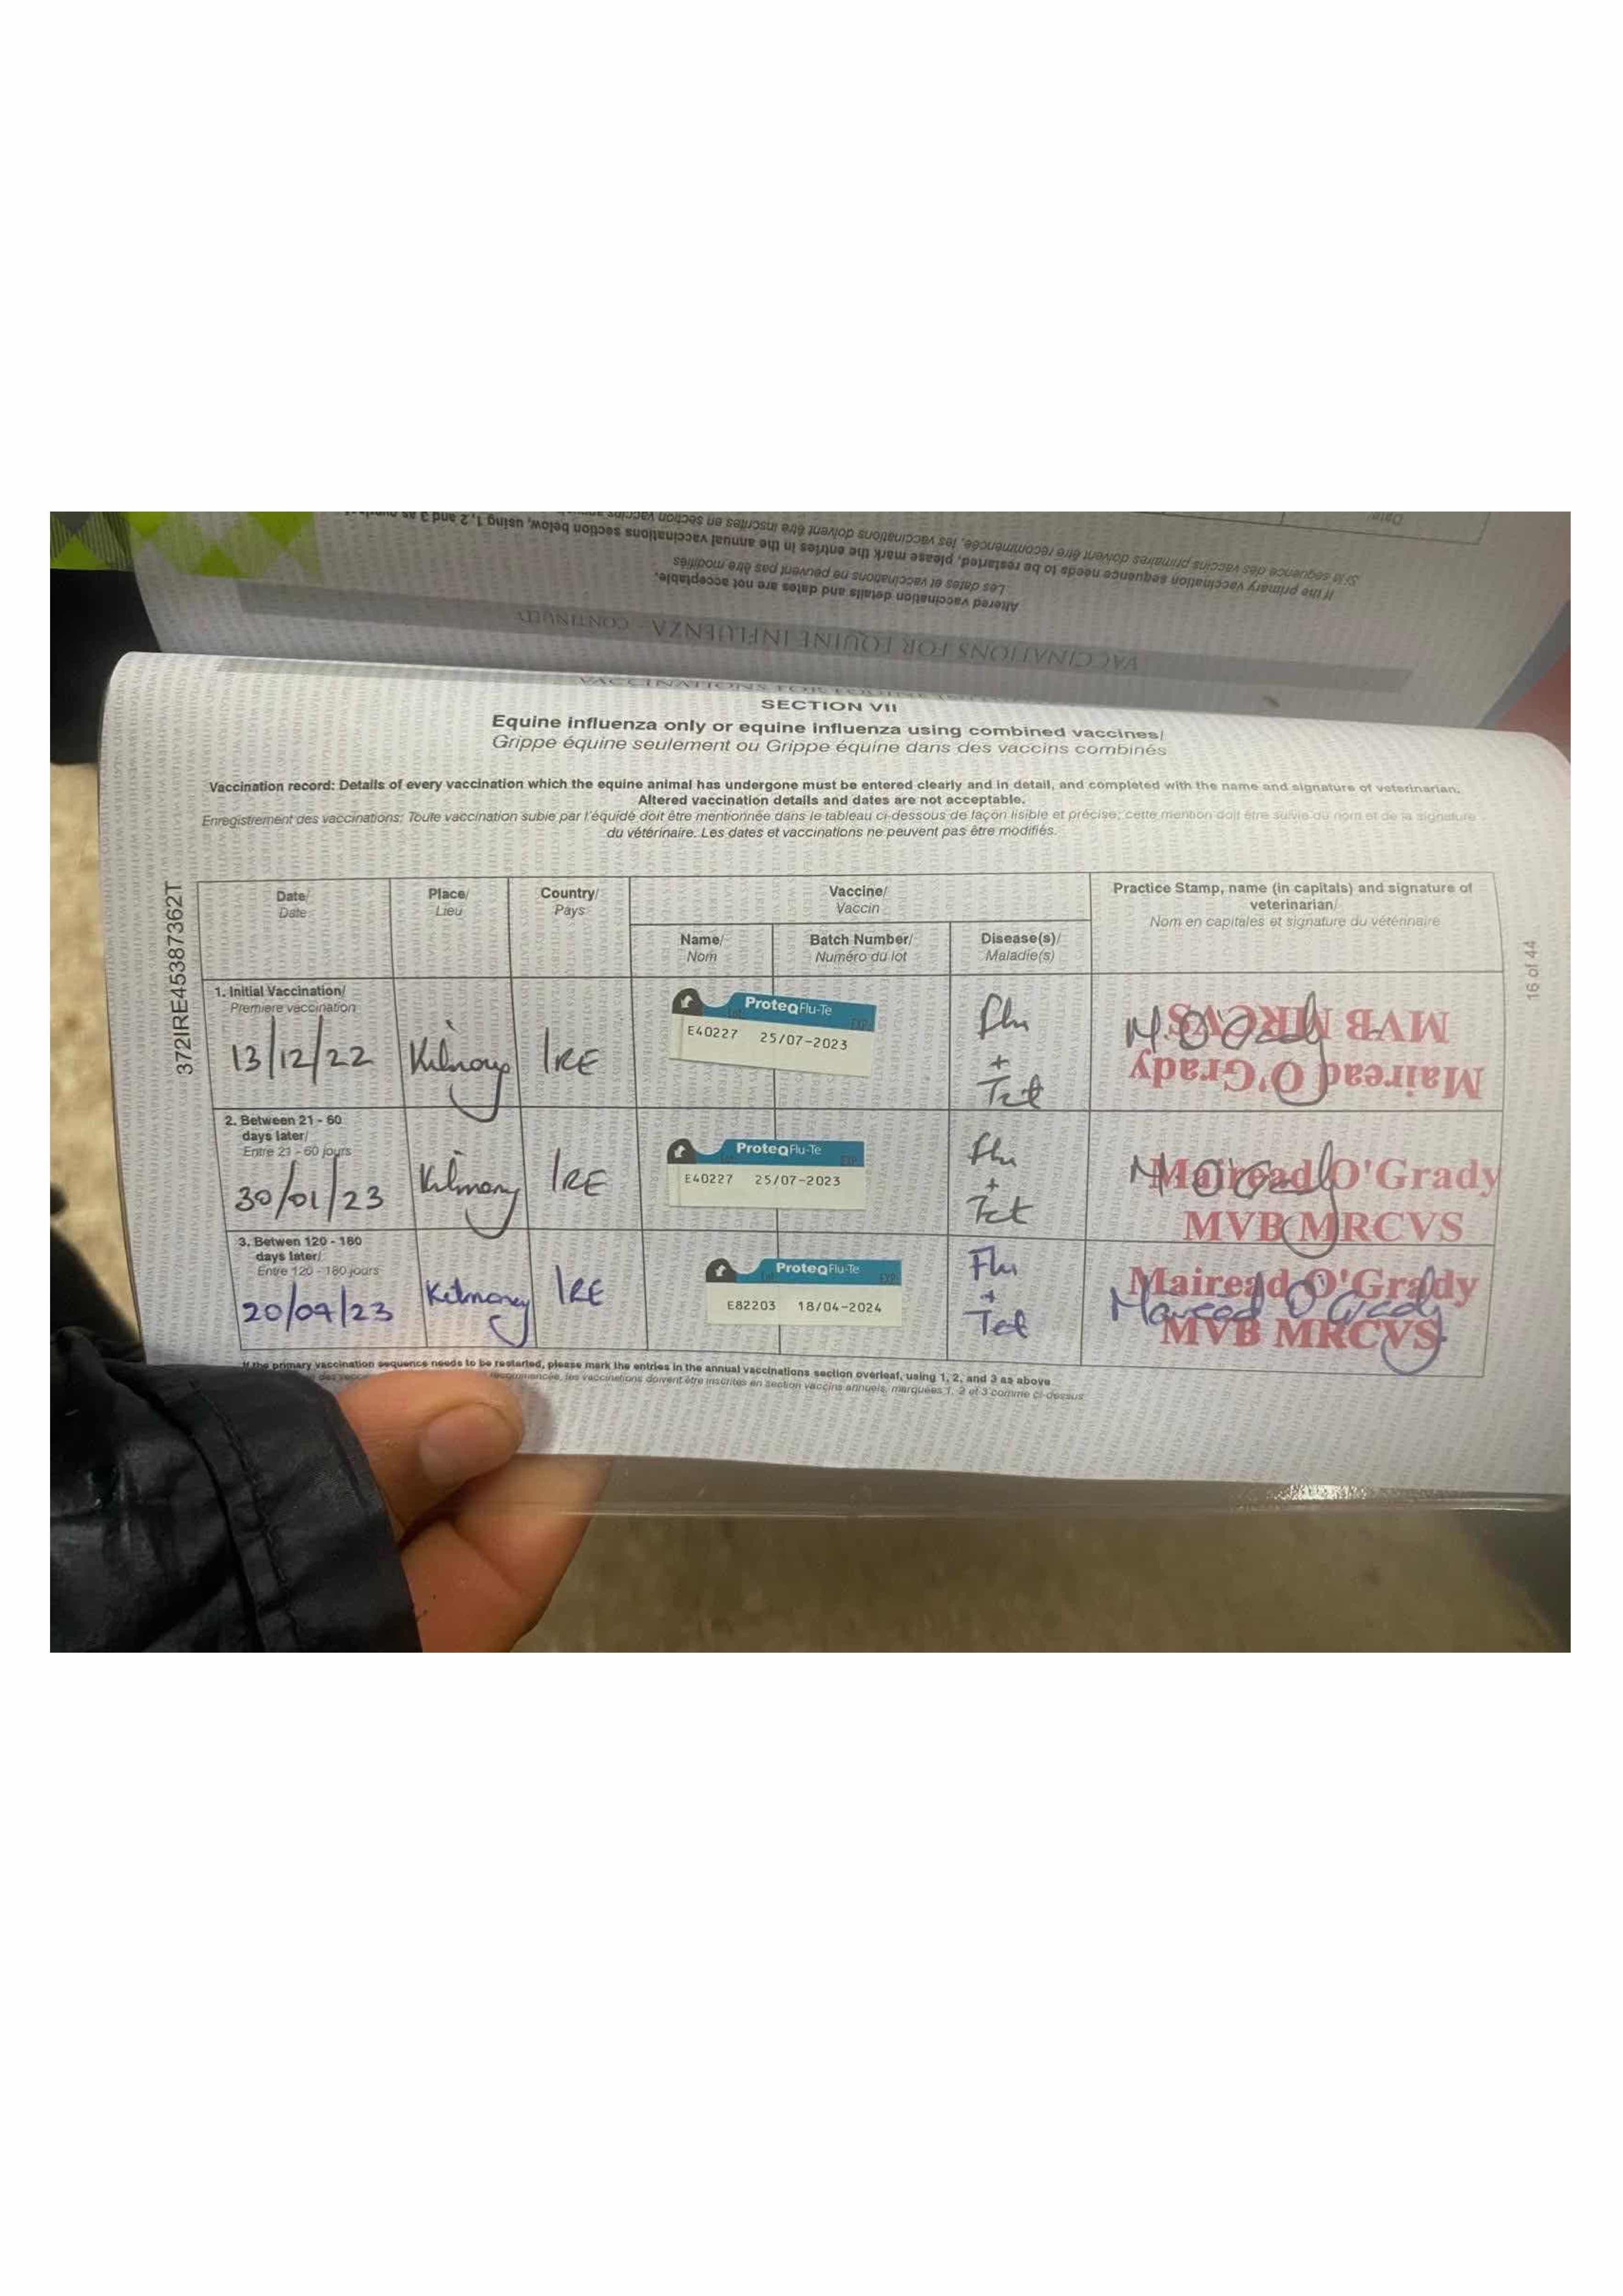 Date/
Si la séquence des vaccins primaires doivent être recommencée, les vaccinations doivent être inscrites en section vaccins
If the primary vaccination sequence needs to be restarted, please mark the entries in the annual vaccinations section below, using 1, 2 and 3 as
Les dates et vaccinations ne peuvent pas être modifiés
Altered vaccination details and dates are not acceptable.
VACCINATIONS FOR EQUINE INFLUENZA - CONTINUED
VACCINATIONS FOR EQUINE
SECTION VII
Equine influenza only or equine influenza using combined vaccines/
Grippe équine seulement ou Grippe équine dans des vaccins combinés
Vaccination record: Details of every vaccination which the equine animal has undergone must be entered clearly and in detail, and completed with the name and signature of veterinarian.
Altered vaccination details and dates are not acceptable.
Enregistrement des vaccinations: Toute vaccination subie par l'équidé doit être mentionnée dans le tableau ci-dessous de façon lisible et précise; cette mention doit être suivie du nom et de la signature
du vétérinaire. Les dates et vaccinations ne peuvent pas être modifiés.
372IRE45387362T
16 of 44
Date/ Place/ Country/ Vaccine/ Practice Stamp, name (in capitals) and signature of
Date Lieu Pays Vaccin veterinarian/
Nom en capitales et signature du vétérinaire
Name/ Batch Number/ Disease(s)/
Nom Numéro du lot Maladie(s)
1. Initial Vaccination/
Premiere vaccination
13/12/22 Kilmoney IRE ProteqFlu-Te E40227 25/07-2023 Flu + Tet M O'Grady
Mairead O'Grady
MVB MRCVS
2. Between 21 - 60
days later/
Entre 21 - 60 jours
30/01/23 Kilmoney IRE ProteqFlu-Te E40227 25/07-2023 Flu + Tet M O'Grady
Mairead O'Grady
MVB MRCVS
3. Betwen 120 - 180
days later/
Entre 120 - 180 jours
Kilmoney IRE ProteqFlu-Te E82203 18/04-2024 Flu + Tet Mairead O'Grady
Mairead O'Grady
MVB MRCVS
If the primary vaccination sequence needs to be restarted, please mark the entries in the annual vaccinations section overleaf, using 1, 2, and 3 as above
recommencée, les vaccinations doivent être inscrites en section vaccins annuels, marquées 1, 2 et 3 comme ci-dessus